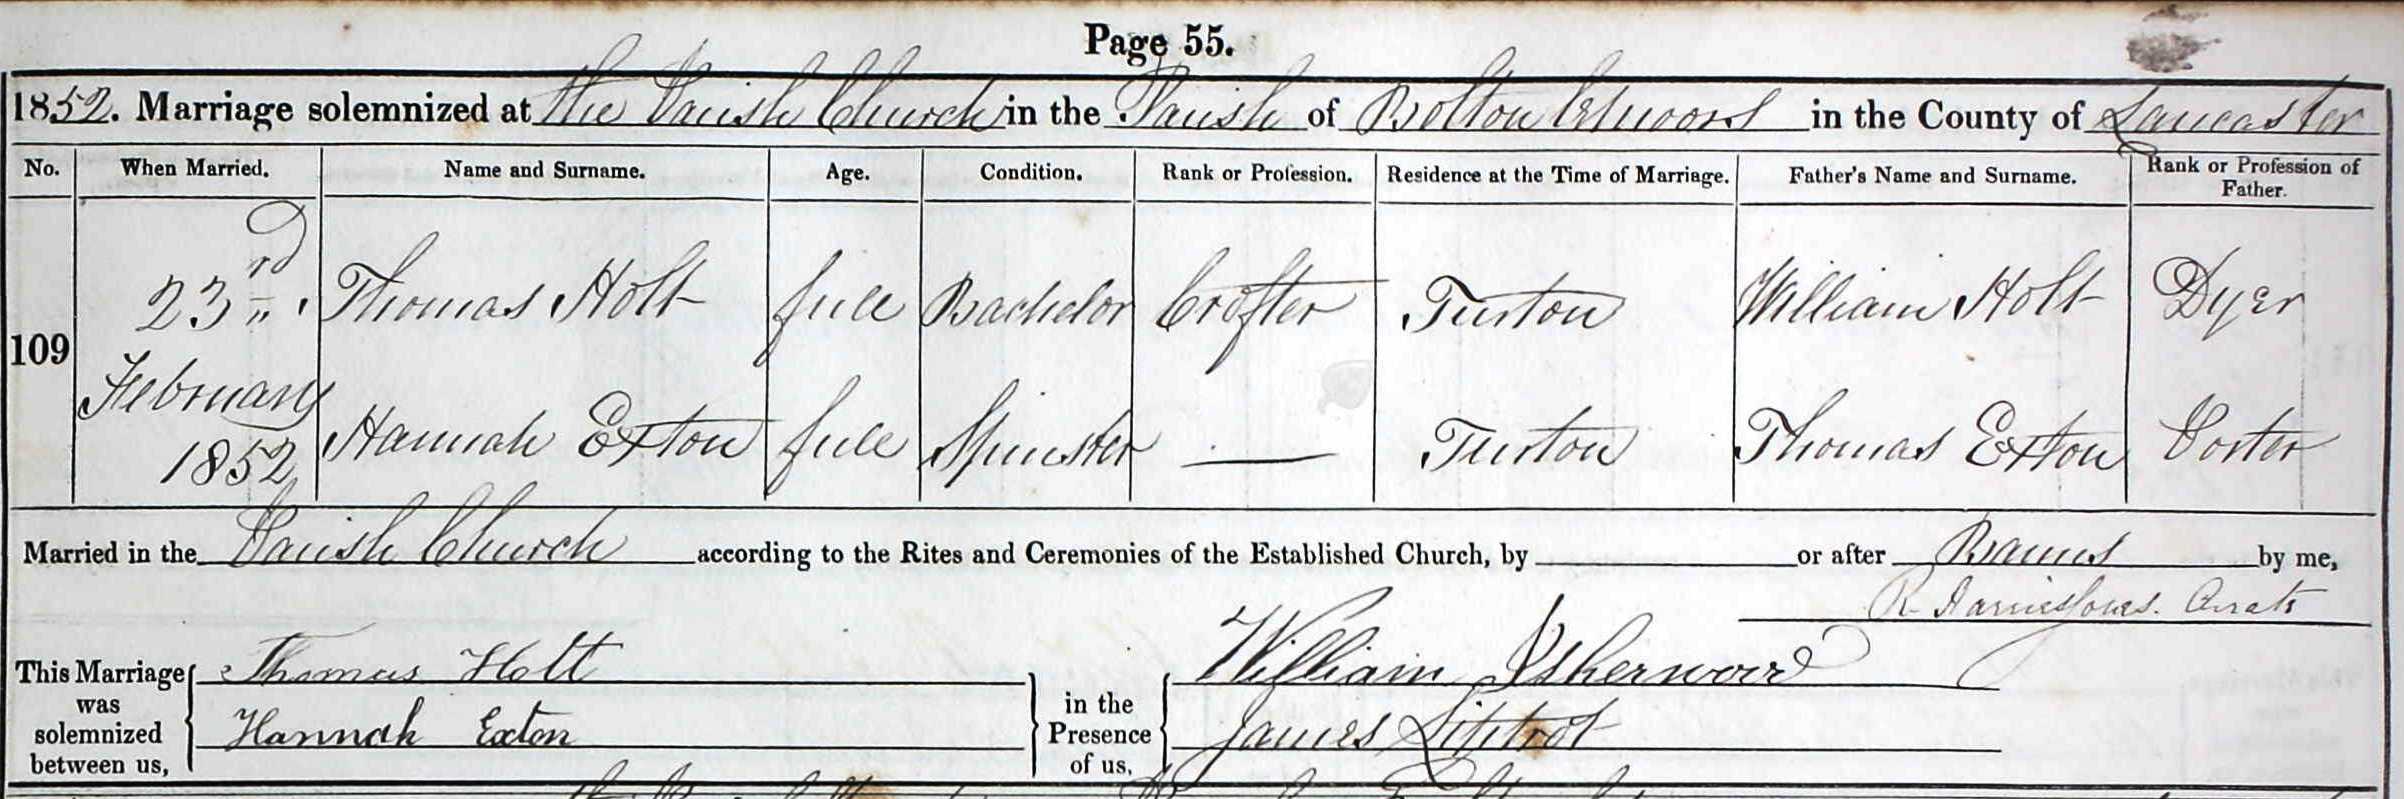 Page 55.
1852. Marriage solemnized at the Parish Church in the Parish of Bolton in the County of Lancaster
No. When Married. Name and Surname. Age. Condition. Rank or Profession. Residence at the Time of Marriage. Father's Name and Surname. Rank or Profession of Father.
109
23rd February 1852
Thomas Holt full Bachelor Crofter Turton William Holt Dyer
Hannah Exton full Spinster — Turton Thomas Exton Porter
Married in the Parish Church according to the Rites and Ceremonies of the Established Church, by or after Banns by me,
R. Curate
This Marriage was solemnized between us, Thomas Holt
Hannah Exton
in the Presence of us, William Isherwood
James